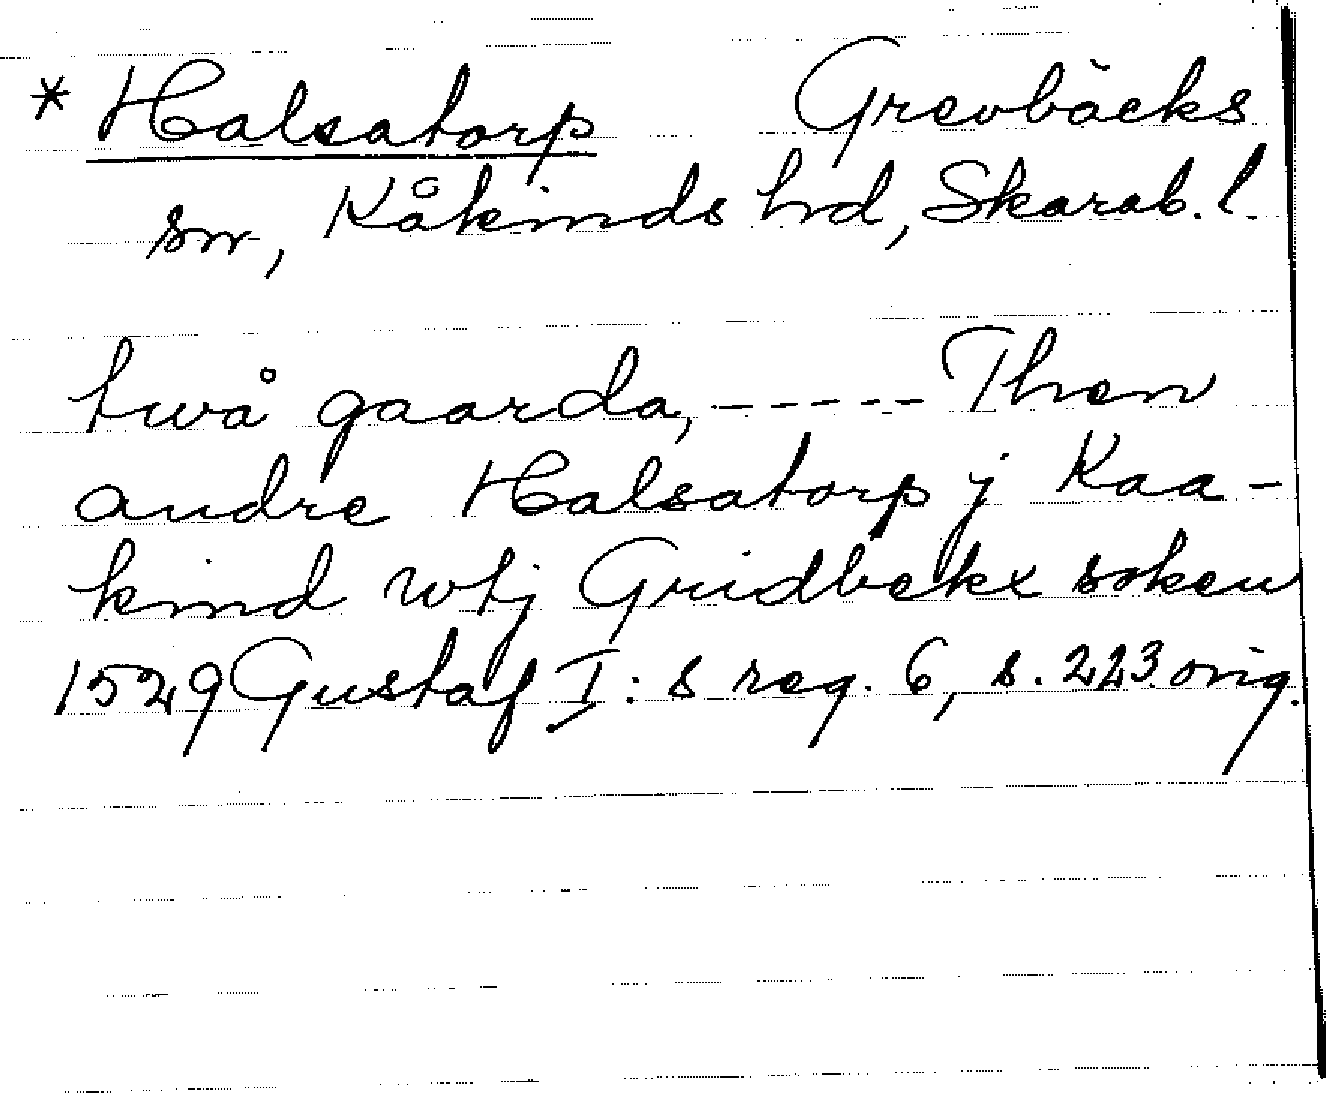 * Halsatorp Grevbäcks
sn, Kåkinds hrd, Skarab. l.
twå gaarda, ----- Then
andre Halsatorp j Kaa-
kind wtj Gridbekx soken
1529 Gustaf I:s reg. 6, s. 223 orig.